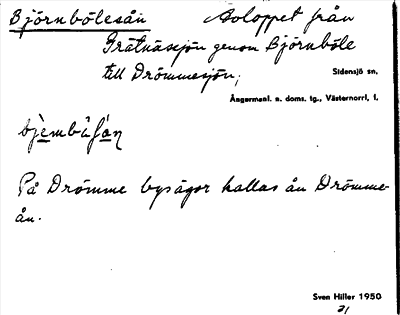 Björnbölesån Avloppet från
Gråtnäsesjön genom Björnböle
till Drömmesjön;
Sidensjö sn.
Ångermanl. n. doms. tg., Västernorrl. l.
På Drömme bysägor kallas ån Drömme-
ån.
Sven Hiller 1950